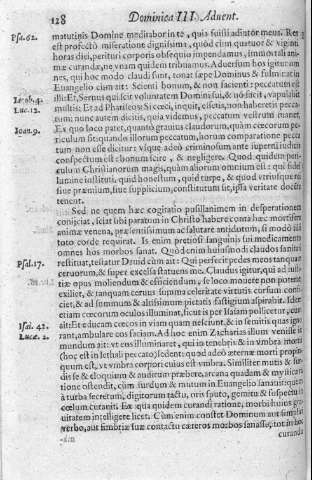 128 Dominica III. Aduent.
Psa. 62. matutinis Domine meditabor in te, quia fuisti adiutor meus. Res
est profectò miseratione dignissima, quòd cùm quatuor & viginti
horas diei, perituri corporis obsequio impendamus, immortali ani-
mæ curandæ, ne vnam quidem tribuamus. Aduersùm hos igitur omnes,
qui hoc modo claudi sunt, tonat sæpe Dominus & fulminat in
Euangelio cùm ait: Scienti bonum, & non facienti: peccatum est
Iacob. 4. illi: Et, Seruus qui scit voluntatem Domini sui, & nõ facit, vapulabit
Luc. 12. multis: Et ad Pharisæos Si cœci, inquit, essetis, non haberetis pecca-
tum; nunc autem dicitis, quia videmus, peccatum vestrum manet.
Ioan. 9. Ex quo loco patet, quantò grauius claudorum, quàm cæcorum pe-
riculum sit: siquidem illorum peccatum, horum comparatione pecca-
tum non esse dicitur: vsque adeò criminosum ante superni iudicis
conspectum est: bonum scire, & negligere. Quod quidem pen-
culum Christianorum magis, quàm aliorum omnium est: qui fidei
lumine instituti, quid honestum, quid turpe, & quod vtriusque rei
siue præmium, siue supplicium, constitutum sit, ipsa veritate docti
tenent.
Sed ne quem hæc cogitatio pusillanimem in desperationem
coniiciat, sciat sibi paratum in Christo habere contra hæc mortifera
animæ venena, præsentissimum ac salutare antidotum, si modò illud
toto corde requirat. Is enim pretiosi sanguinis sui medicamento
omnes hos morbos sanat. Quòd enim huiusmodi claudos sanitati
Psal. 17. restituat, testatur Dauid cùm ait: Qui perfecit pedes meos tanquam
ceruorum, & super excelsa statuens me. Claudus igitur, qui ad iusti-
tiæ opus moliendum & efficiendum, se loco mouere non poterat,
exiliet, & tanquam ceruus summa celeritate virtutis cursum confi-
ciet, & ad summum & altissimum pietatis fastigium aspirabit. Idem
etiam cæcorum oculos illuminat, sicut is per Isaiam pollicetur, cùm
Isai. 42. ait: Et educam cæcos in viam quam nesciunt, & in semitis quas igno-
Lucæ. 2. rant, ambulare eos faciam. Ad hoc enim Zacharias illum venisse in
mundum ait: vt eos illuminaret, qui in tenebris & in vmbra mortis
(hoc est in lethali peccato) sedent: quod adeò æternæ morti propin-
quum est, vt vmbra corpori cuius est vmbra. Similiter mutis & sur-
dis se & eloquium & auditum præbere, arcana quadam & mystica ra-
tione ostendit, cùm surdum & mutum in Euangelio sanauit: quem
à turba secretum, digitorum tactu, oris sputo, gemitu & suspectu in
cœlum curauit. Ex qua quidem curandi ratione, morbi huius gra-
uitatem intelligere licet. Cùm enim constet Dominum aut simplici
verbo, aut simbriæ suæ contactu cæteros morbos sanasse, tot in hoc
curanda